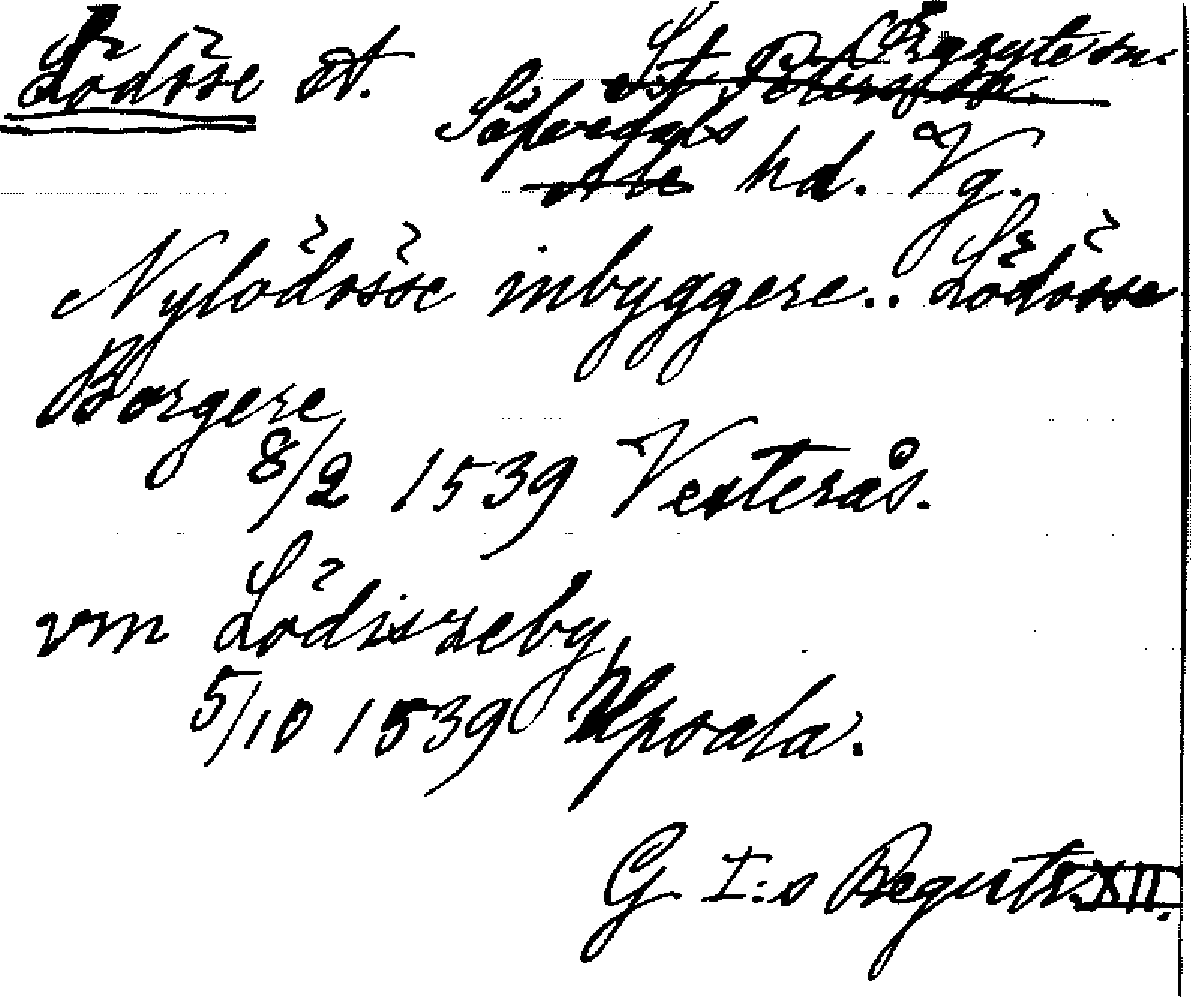 Lödöse st. Örgryte sn.
St. Peders sn.
Säfvedals
Ale hd. Vg.
Nylödösse inbyggere.. Lödösse
Borgere
8/2 1539 Vesterås.
vm Lödiszeby
5/10 1539 Upsala.
G I:s Registr. XII.